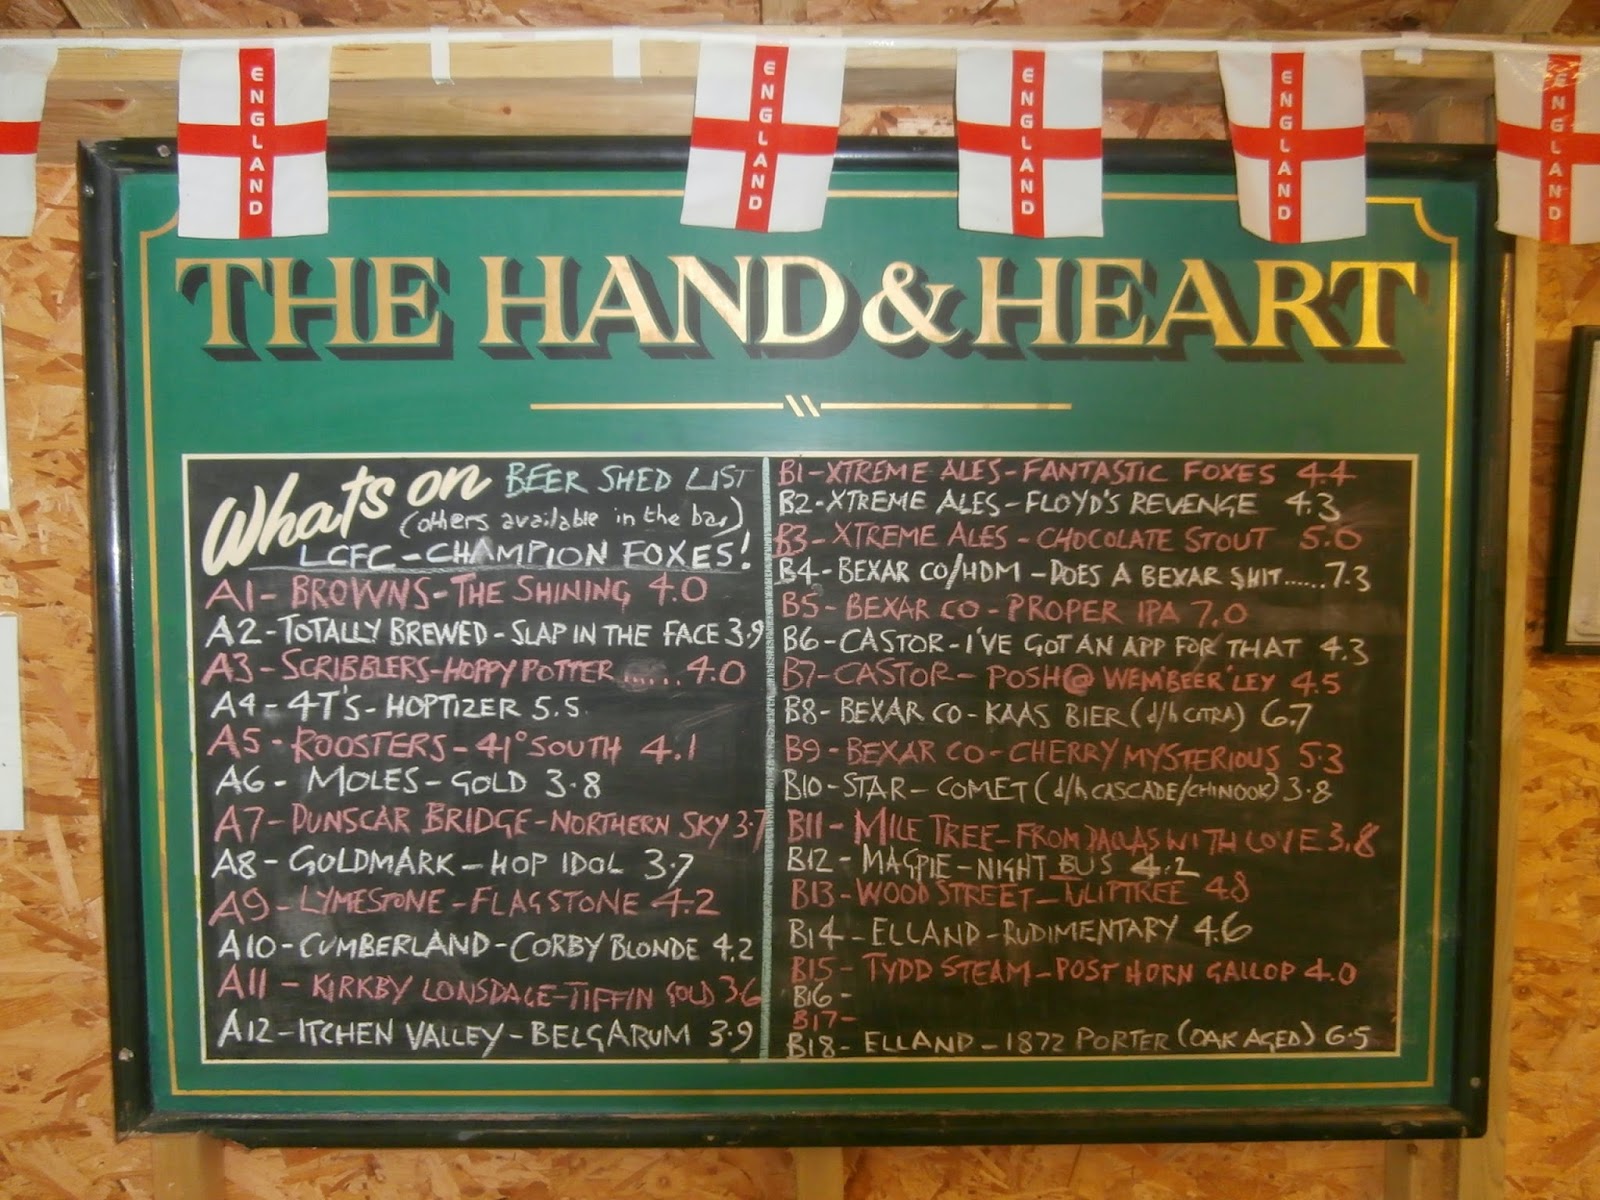 ENGLAND
ENGLAND
ENGLAND
ENGLAND
ENGLAND
THE HAND & HEART
Whats on BEER SHED LIST
(others available in the bar)
LCFC - CHAMPION FOXES!
A1 - BROWNS - THE SHINING 4.0
A2 - TOTALLY BREWED - SLAP IN THE FACE 3.9
A3 - SCRIBBLERS - HOPPY POTTER ...... 4.0
A4 - 4T'S - HOPTIZER 5.5
A5 - ROOSTERS - 41° SOUTH 4.1
A6 - MOLES - GOLD 3.8
A7 - DUNSCAR BRIDGE - NORTHERN SKY 3.7
A8 - GOLDMARK - HOP IDOL 3.7
A9 - LYMESTONE - FLAGSTONE 4.2
A10 - CUMBERLAND - CORBY BLONDE 4.2
A11 - KIRKBY LONSDALE - TIFFIN GOLD 3.6
A12 - ITCHEN VALLEY - BELGARUM 3.9
B1 - XTREME ALES - FANTASTIC FOXES 4.4
B2 - XTREME ALES - FLOYD'S REVENGE 4.3
B3 - XTREME ALES - CHOCOLATE STOUT 5.0
B4 - BEXAR CO/HDM - DOES A BEXAR $HIT......7.3
B5 - BEXAR CO - PROPER IPA 7.0
B6 - CASTOR - I'VE GOT AN APP FOR THAT 4.3
B7 - CASTOR - POSH @ WEM'BEER'LEY 4.5
B8 - BEXAR CO - KAAS BIER (d/h CITRA) 6.7
B9 - BEXAR CO - CHERRY MYSTERIOUS 5.3
B10 - STAR - COMET (d/h CASCADE/CHINOOK) 3.8
B11 - MILE TREE - FROM DALLAS WITH LOVE 3.8
B12 - MAGPIE - NIGHT BUS 4.2
B13 - WOOD STREET - TULIPTREE 4.8
B14 - ELLAND - RUDIMENTARY 4.6
B15 - TYDD STEAM - POST HORN GALLOP 4.0
B16 -
B17 -
B18 - ELLAND - 1872 PORTER (OAK AGED) 6.5